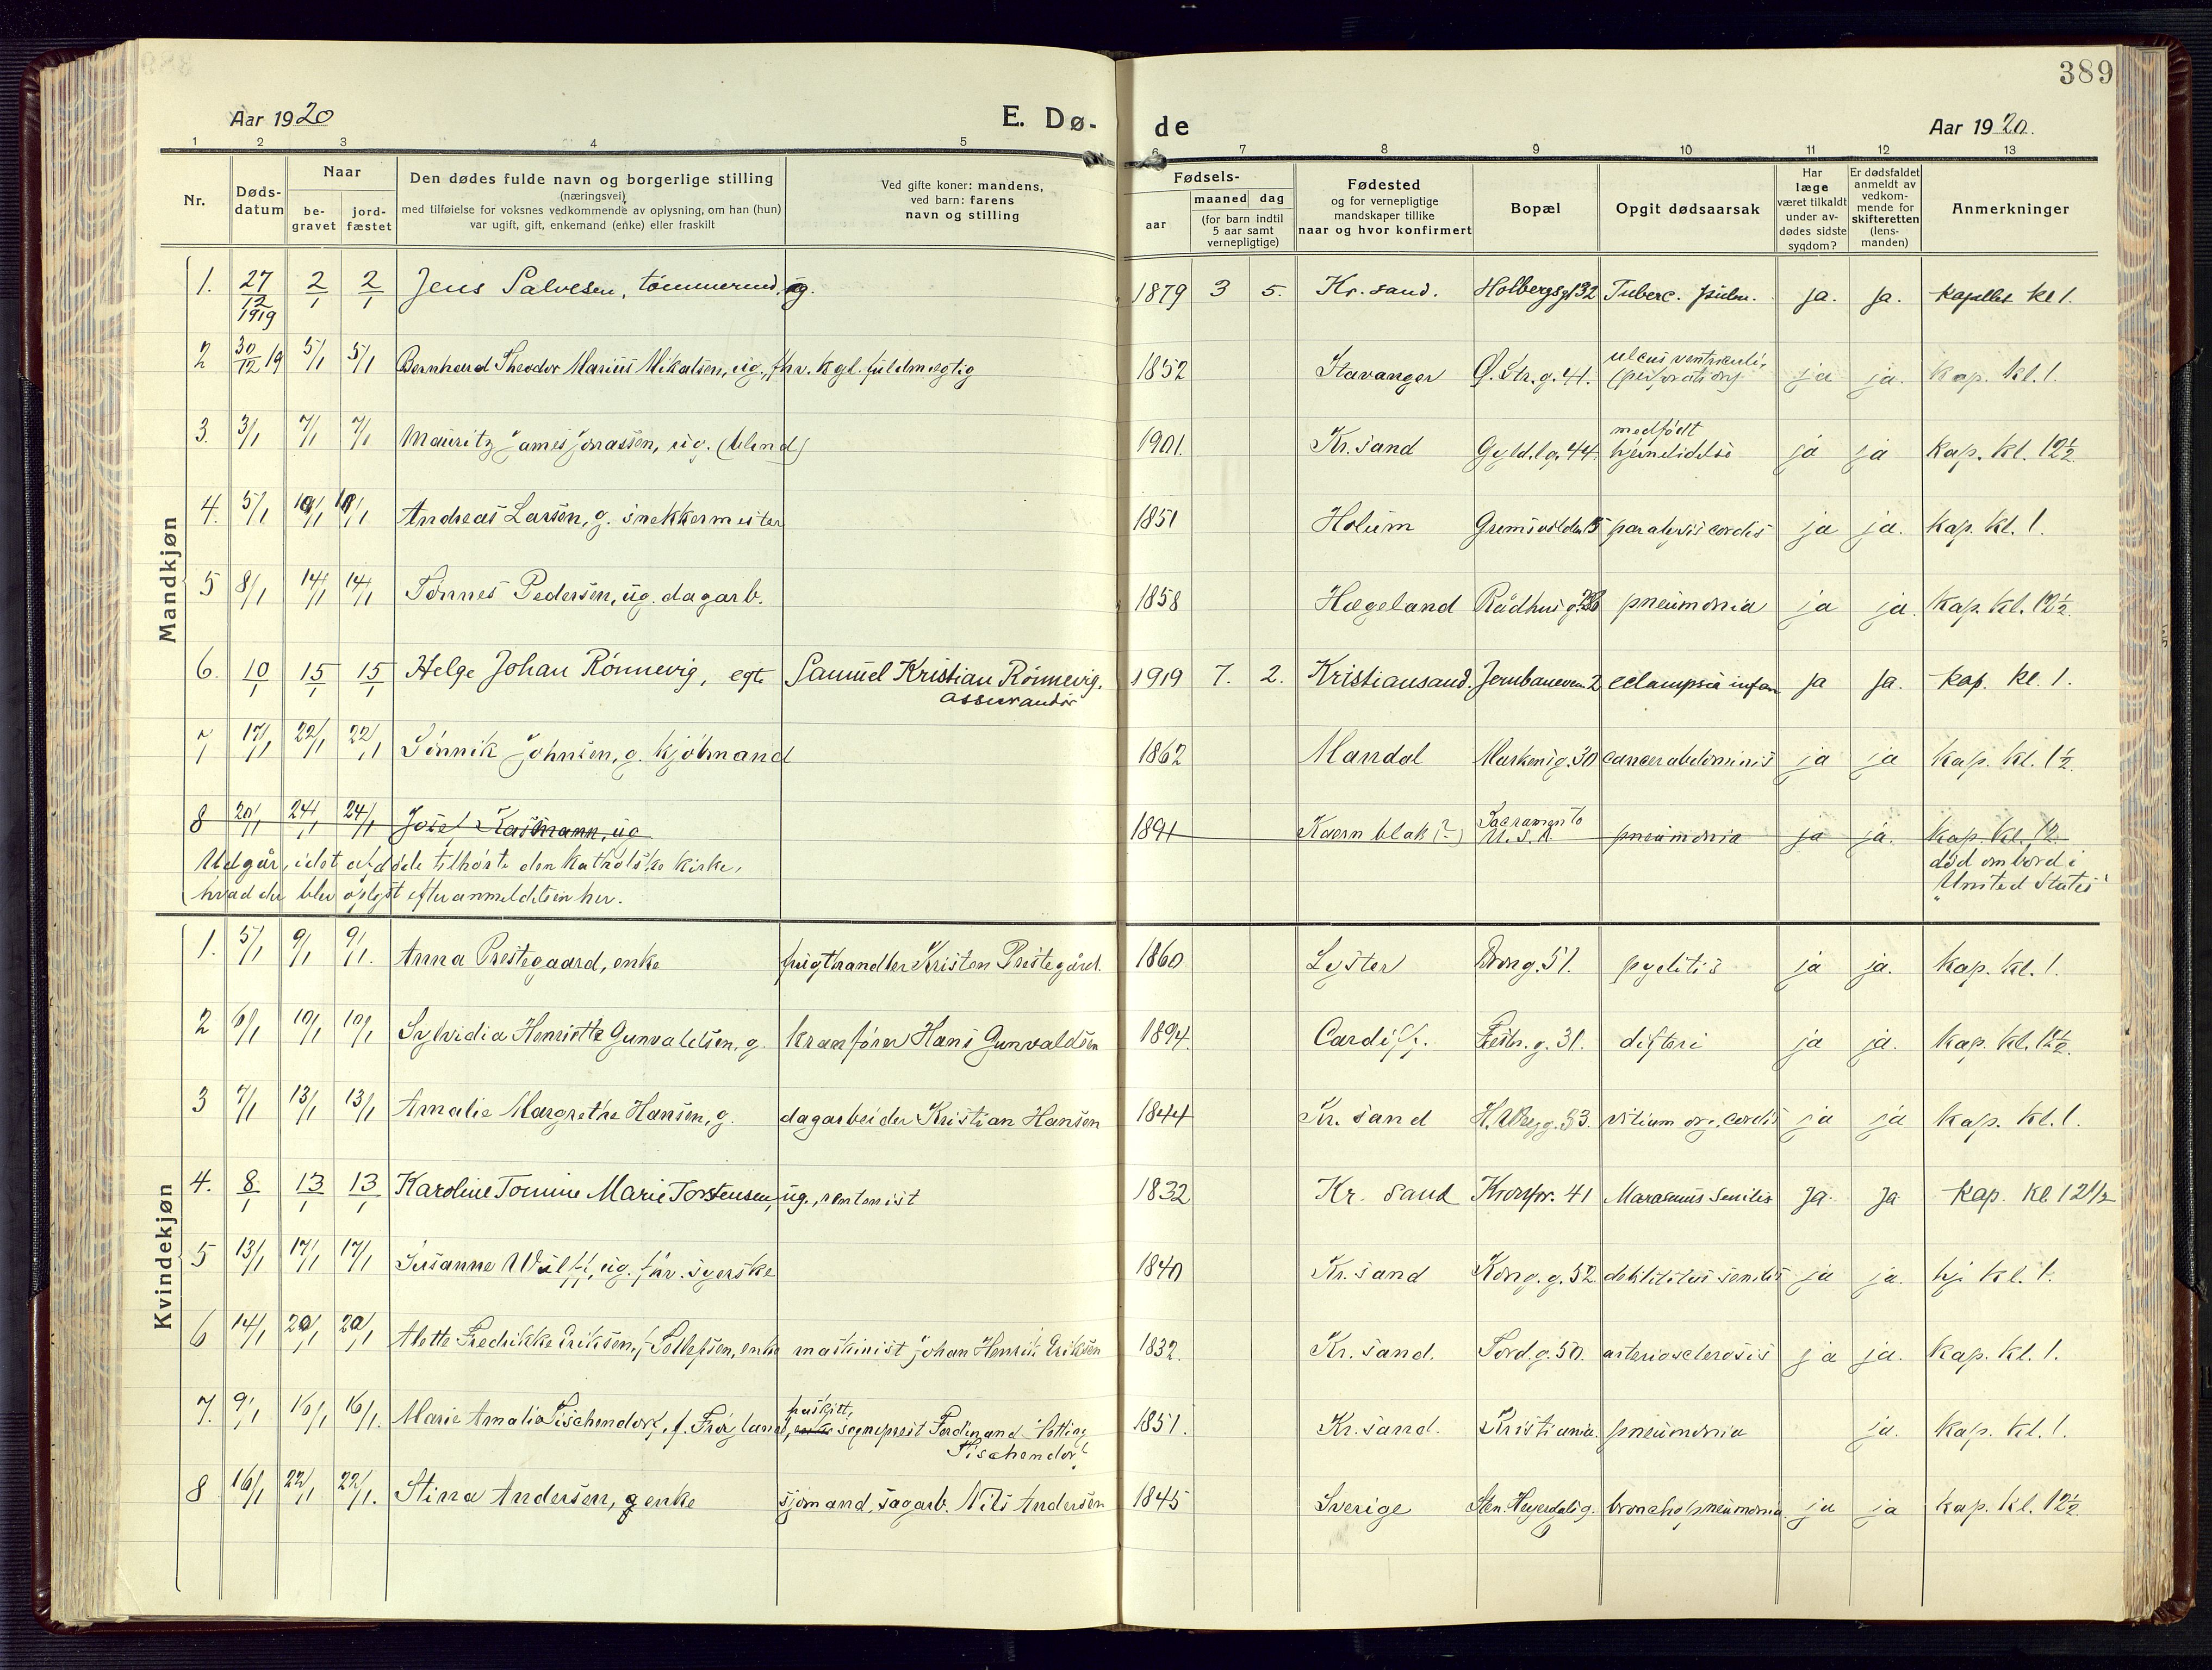 389
Aar 1920
E. Dø- de
Aar 1920.
1 2 3 4 5 6 7 8 9 10 11 12 13
Nr.
Døds-
datum
Naar
be-
gravet
jord-
fæstet
Den dødes fulde navn og borgerlige stilling
(næringsvei)
med tilføielse for voksnes vedkommende av oplysning, om han (hun)
var ugift, gift, enkemand (enke) eller fraskilt
Ved gifte koner: mandens,
ved barn: farens
navn og stilling
Fødsels-
aar
maaned dag
(for barn indtil
5 aar samt
vernepligtige)
Fødested
og for vernepligtige
mandskaper tillike
naar og hvor konfirmert
Bopæl
Opgit dødsaarsak
Har
læge
været tilkaldt
under av-
dødes sidste
sygdom?
Er dødsfaldet
anmeldt av
vedkom-
mende for
skifteretten
(lens-
manden)
Anmerkninger
Mandkjøn
1. 27/12 1919 2/1 2/1 Jens Salvesen, tømmermd, ug. 1879 3 5. Kr.sand. Holbergsgt 32 Tuberc. pulm. ja. ja. kapellet kl 1.
2 30/12 19 5/1 5/1 Bernhard Theodor Marius Mikalsen, ug., fhv. kgl. fuldmægtig 1852 Stavanger Ø. Str. g. 41. ulcus ventriculi, (perforation) ja ja. kap. kl. 1.
3. 3/1 7/1 7/1 Mauritz James Jonassen, ug. (blind) 1901. Kr.sand Gyld.l.g. 44. medfødt hjernelidelse ja ja kap. kl. 12½
4. 5/1 10/1 10/1 Andreas Larsen, g. snekkermester 1851 Holum Grimsvolden 5 paralysis cordis ja ja. kap. kl. 1.
5 8/1 14/1 14/1 Tønnes Pedersen, ug. dagarb. 1858 Hægeland Rådhusg. pneumonia ja ja. kap. kl. 12½.
6. 10/1 15/1 15/1 Helge Johan Rönnevig, egt. Samuel Kristian Rönnevig, assurandör 1919 7. 2. Kristiansand. Jernbaneven 2 eclampsia infan ja ja. kap. kl. 1.
7 17/1 22/1 22/1 Sønnik Johnsen, g. kjøbmand 1862 Mandal Markensg. 30 cancer abdominis ja ja kap. kl. 1½.
8 20/1 24/1 24/1 Josef Kasmann, ug 1891 Kaern blak (?) Sacramento U.S.A. pneumonia ja ja. kap. kl. 12
død ombord i
"United States"
Udgår, idet afdøde tilhørte den katholske kirke,
hvad der blev oplyst efter anmeldelsen her.
Kvindekjøn
1. 5/1 9/1 9/1. Anna Prestegaard, enke frugthandler Kristen Prestegård. 1860 Lyster Drong. 51. pyelitis ja ja. kap. kl. 1.
2 6/1 10/1 10/1 Sylvidia Henriette Gunvaldsen, g. kranfører Hans Gunvaldsen 1894. Cardiff. Festn. g. 31. difteri ja ja. kap. kl. 12½.
3 7/1 13/1 13/1 Amalie Margrethe Hansen, g. dagarbeider Kristian Hansen 1844 Kr. sand Holbergg. 33. vitium org. cordis ja ja kap. kl. 1.
4. 8/1 13/1 13/1 Karoline Tomine Marie Torstensen, ug., rentenist 1832 Kr. sand Kronpr. 41 Marasmus senilis ja. ja kap. kl. 12 1/2
5 13/1 17/1 17/1 Susanne Wulff, ug. fhv. syerske 1840 Kr. sand Kong. g. 52. debilitas senilis ja ja. hj kl. 1.
6 14/1 20/1 20/1 Alette Fredrikke Eriksen, f. Tollefsen, enke maskinist Johan Henrik Eriksen 1832. Kr. sand. Tord. g. 50. arteriosclerosis ja ja. kap. kl. 1.
7. 9/1 16/1 16/1. Marie Amalie Tischendorf, f. Frøyland, fraskilt, enke sogneprest Ferdinand Tischendorf 1851. Kr. sand. Kristiania. pneumonia ja. kap. kl. 1.
8 16/1 22/1 22/1. Stina Andersen, g enke sjømand, sagarb. Nils Andersen 1845 Sverige Hen. Heyerdals g. bronchopneumonia ja ja kap. kl. 12½